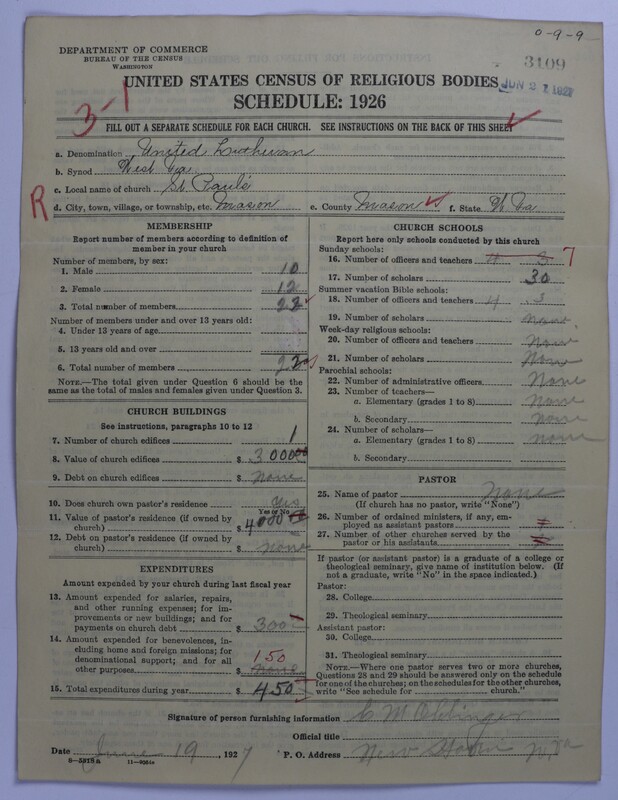 0-9-9
DEPARTMENT OF COMMERCE
BUREAU OF THE CENSUS
WASHINGTON
3109
JUN 27 1927
UNITED STATES CENSUS OF RELIGIOUS BODIES
SCHEDULE: 1926
3-1
FILL OUT A SEPARATE SCHEDULE FOR EACH CHURCH. SEE INSTRUCTIONS ON THE BACK OF THIS SHEET
a. Denomination United Lutheran
b. Synod West Va.
c. Local name of church St. Paul's
R
d. City, town, village, or township, etc. Mason e. County Mason f. State W. Va
MEMBERSHIP
Report number of members according to definition of
member in your church
Number of members, by sex:
1. Male 10
2. Female 12
3. Total number of members 22
Number of members under and over 13 years old:
4. Under 13 years of age
5. 13 years old and over
6. Total number of members 22
NOTE.—The total given under Question 6 should be
same as the total of males and females given under Question 3.
CHURCH BUILDINGS
See instructions, paragraphs 10 to 12
7. Number of church edifices 1
8. Value of church edifices $ 3000 00
9. Debt on church edifices $ none
10. Does church own pastor's residence yes
Yes or No
11. Value of pastor's residence (if owned by
church) $ 4000
12. Debt on pastor's residence (if owned by
church) $ none
EXPENDITURES
Amount expended by your church during last fiscal year
13. Amount expended for salaries, repairs,
and other running expenses; for im-
provements or new buildings; and for
payments on church debt $ 300
14. Amount expended for benevolences, in-
cluding home and foreign missions; for
denominational support; and for all
other purposes $ none 150
15. Total expenditures during year $ 450
CHURCH SCHOOLS
Report here only schools conducted by this church
Sunday schools:
16. Number of officers and teachers 4 3 7
17. Number of scholars 30
Summer vacation Bible schools:
18. Number of officers and teachers 4 3
19. Number of scholars none
Week-day religious schools:
20. Number of officers and teachers None
21. Number of scholars None
Parochial schools:
22. Number of administrative officers None
23. Number of teachers—
a. Elementary (grades 1 to 8) none
b. Secondary none
24. Number of scholars—
a. Elementary (grades 1 to 8) none
b. Secondary
PASTOR
25. Name of pastor none
(If church has no pastor, write "None")
26. Number of ordained ministers, if any, em-
ployed as assistant pastors
27. Number of other churches served by the
pastor or his assistants
If pastor (or assistant pastor) is a graduate of a college or
theological seminary, give name of institution below. (If
not a graduate, write "No" in the space indicated.)
Pastor:
28. College
29. Theological seminary
Assistant pastor:
30. College
31. Theological seminary
NOTE.—Where one pastor serves two or more churches,
Questions 28 and 29 should be answered only on the schedule
for one of the churches; on the schedules for the other churches,
write "See schedule for church."
Signature of person furnishing information C M Ohlinger
Official title
Date June 19, 1927 P. O. Address New Haven W Va
8—5318a 11—9264a